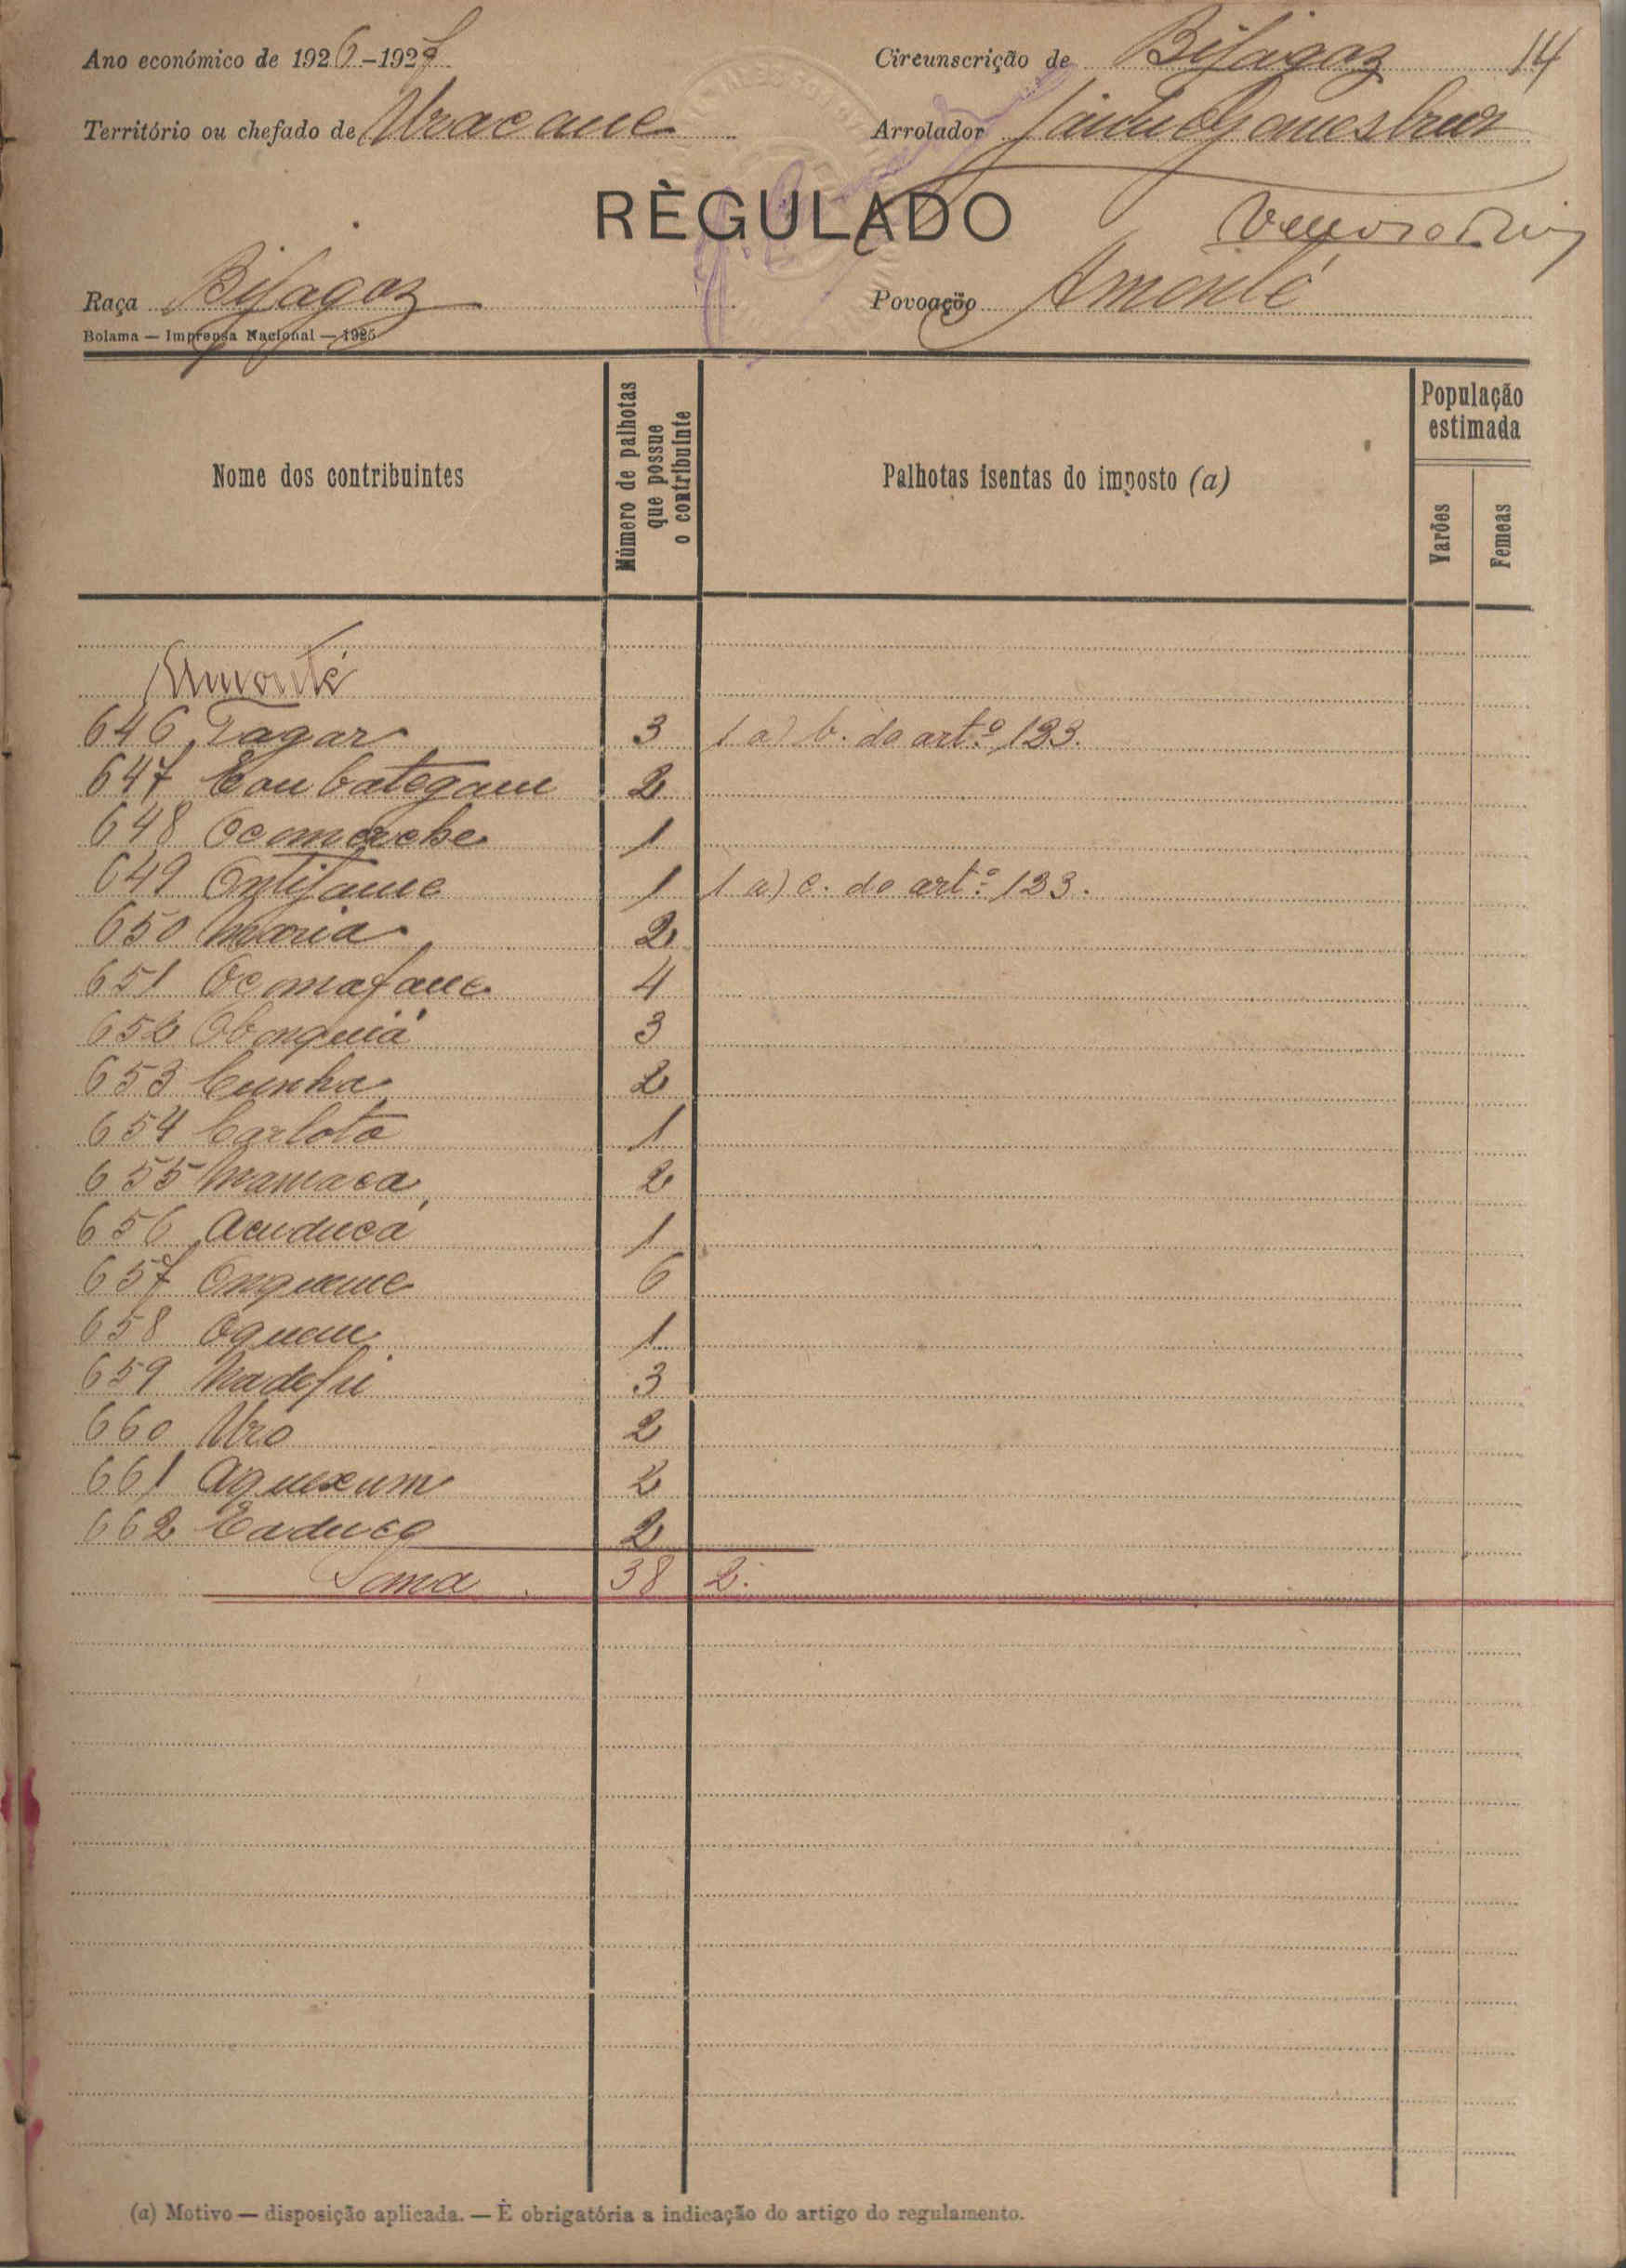 Ano económico de 1926-1927
Circunscrição de Bijagoz 14
Território ou chefado de Uracane
Arrolador Gomes
RÈGULADO
Raça Bijagoz
Povoação Amonté
Bolama — Imprensa Nacional — 1925
Nome dos contribuintes
Número de palhotas que possue o contribuinte
Palhotas isentas do imposto (a)
População estimada
Varões
Femeas
Amonté
646 Tagar 3 1 a) b. do artº 123.
647 2
648 1
649 Ontifane 1 1 a) c. do artº 123.
650 Maria 2
651 Ocomafane 4
652 Obonquiá 3
653 Cunha 2
654 Carlota 1
655 Mamaca 2
656 Acuducá 1
657 Onquame 6
658 1
659 3
660 Uro 2
661 Aquexum 2
662 Caduco 2
Soma 38 2.
(a) Motivo — disposição aplicada. — É obrigatória a indicação do artigo do regulamento.